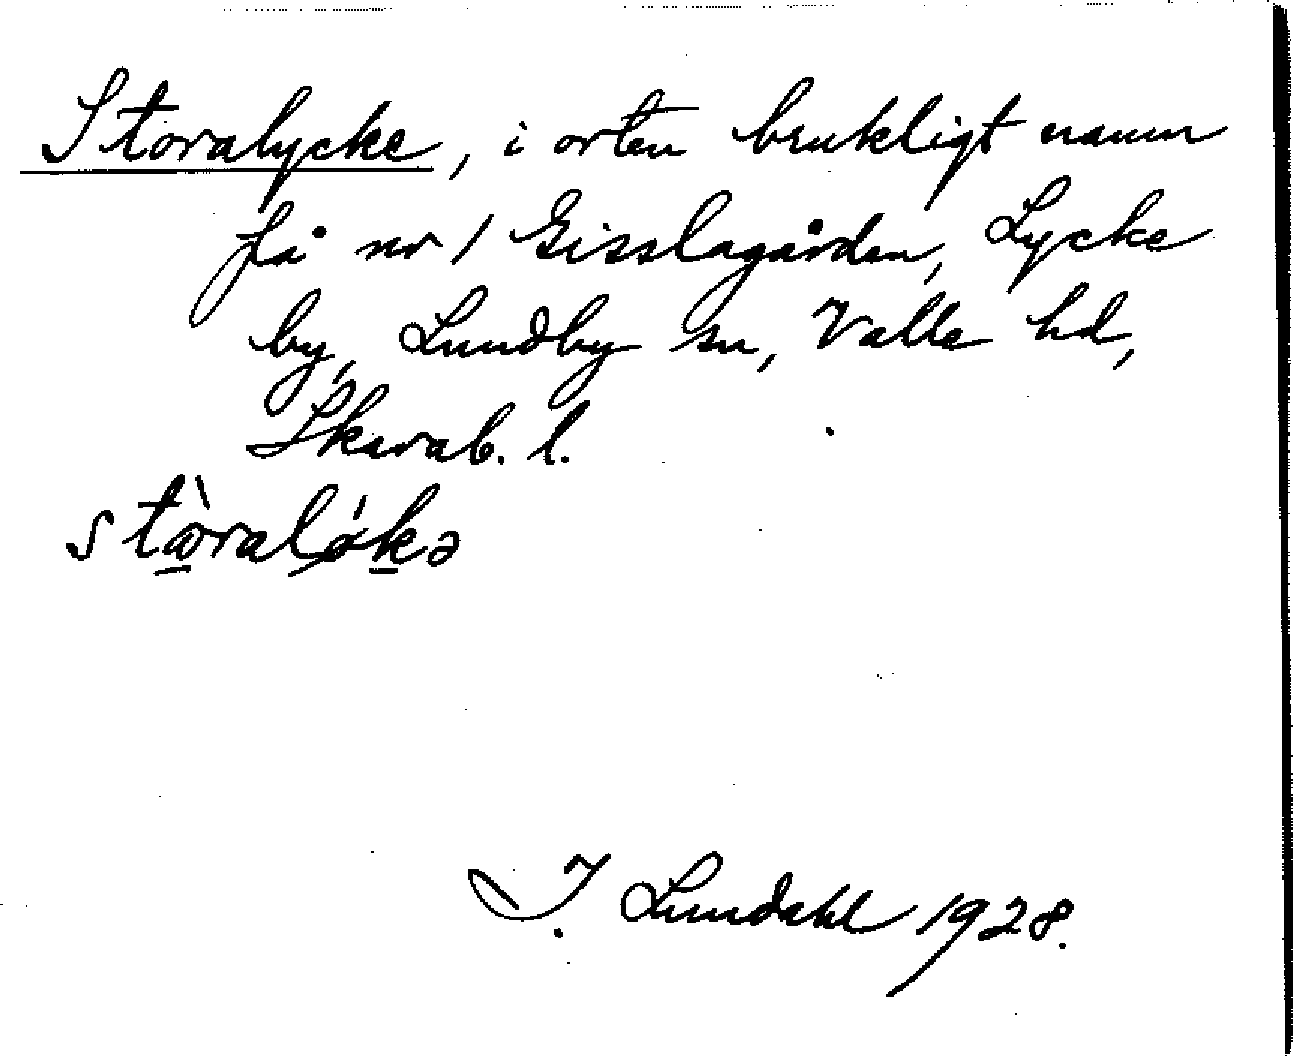 Storalycke, i orten brukligt namn
på nr 1 Gisslagården, Lycke
by, Lundby sn, Valle hd,
Skarab. l.
I. Lundahl 1928.